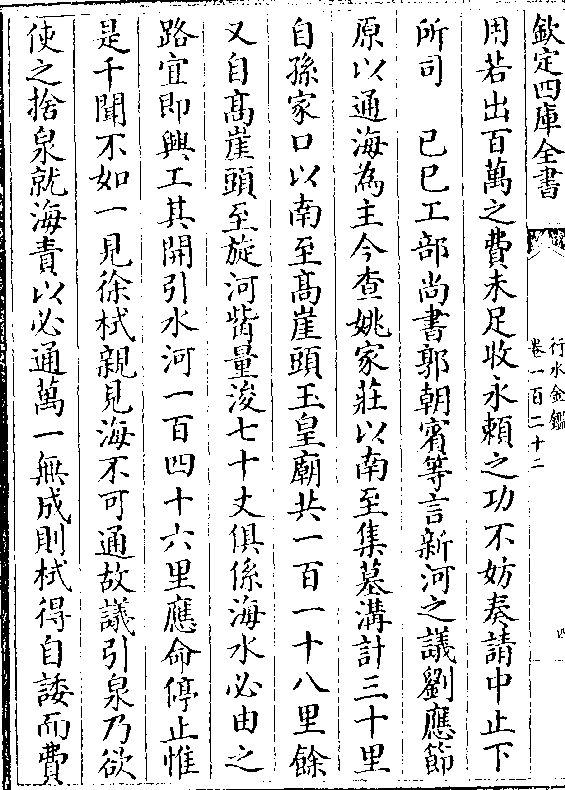 欽定四庫全書
行水金鑑
卷一百二十二
四
用若出百萬之費未足收永賴之功不妨奏請中止下
所司　已巳工部尚書郭朝賓等言新河之議劉應節
原以通海為主今查姚家莊以南至集墓溝計三十里
自孫家口以南至髙崖頭玉皇廟共一百一十八里餘
又自髙崖頭至旋河觜量浚七十丈俱係海水必由之
路宜即興工其開引水河一百四十六里應命停止惟
是千聞不如一見徐栻親見海不可通故議引泉乃欲
使之捨泉就海責以必通萬一無成則栻得自諉而費